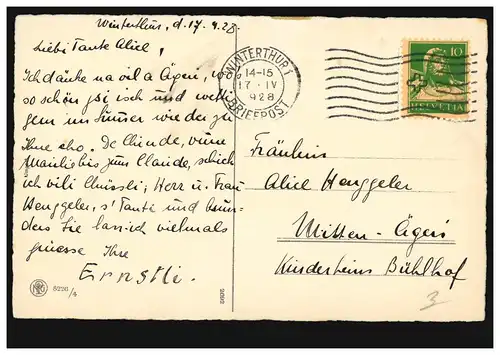 Winterthur, d. 17. 4. 28.
Liebi Tante Alice,
Ich dänke na vil a Ägeri, wo's
so schön gsi isch und wett
gern im Summer wieder zu
Ihne cho. De Chinde, vum
Mailis bis zum Claude, schick
ich vili Chüssli; Herr u. Frau
Henggeler, s' Tante und
Sie lass ich vielmals
grüesse Ihre
Ernstli.
WINTERTHUR 1
14-15
17. IV
1928
BRIEFPOST
10
HELVETIA
Fräulein
Alice Henggeler
Mitten-Ägeri
Kinderheim Bühlhof
5236/4
3